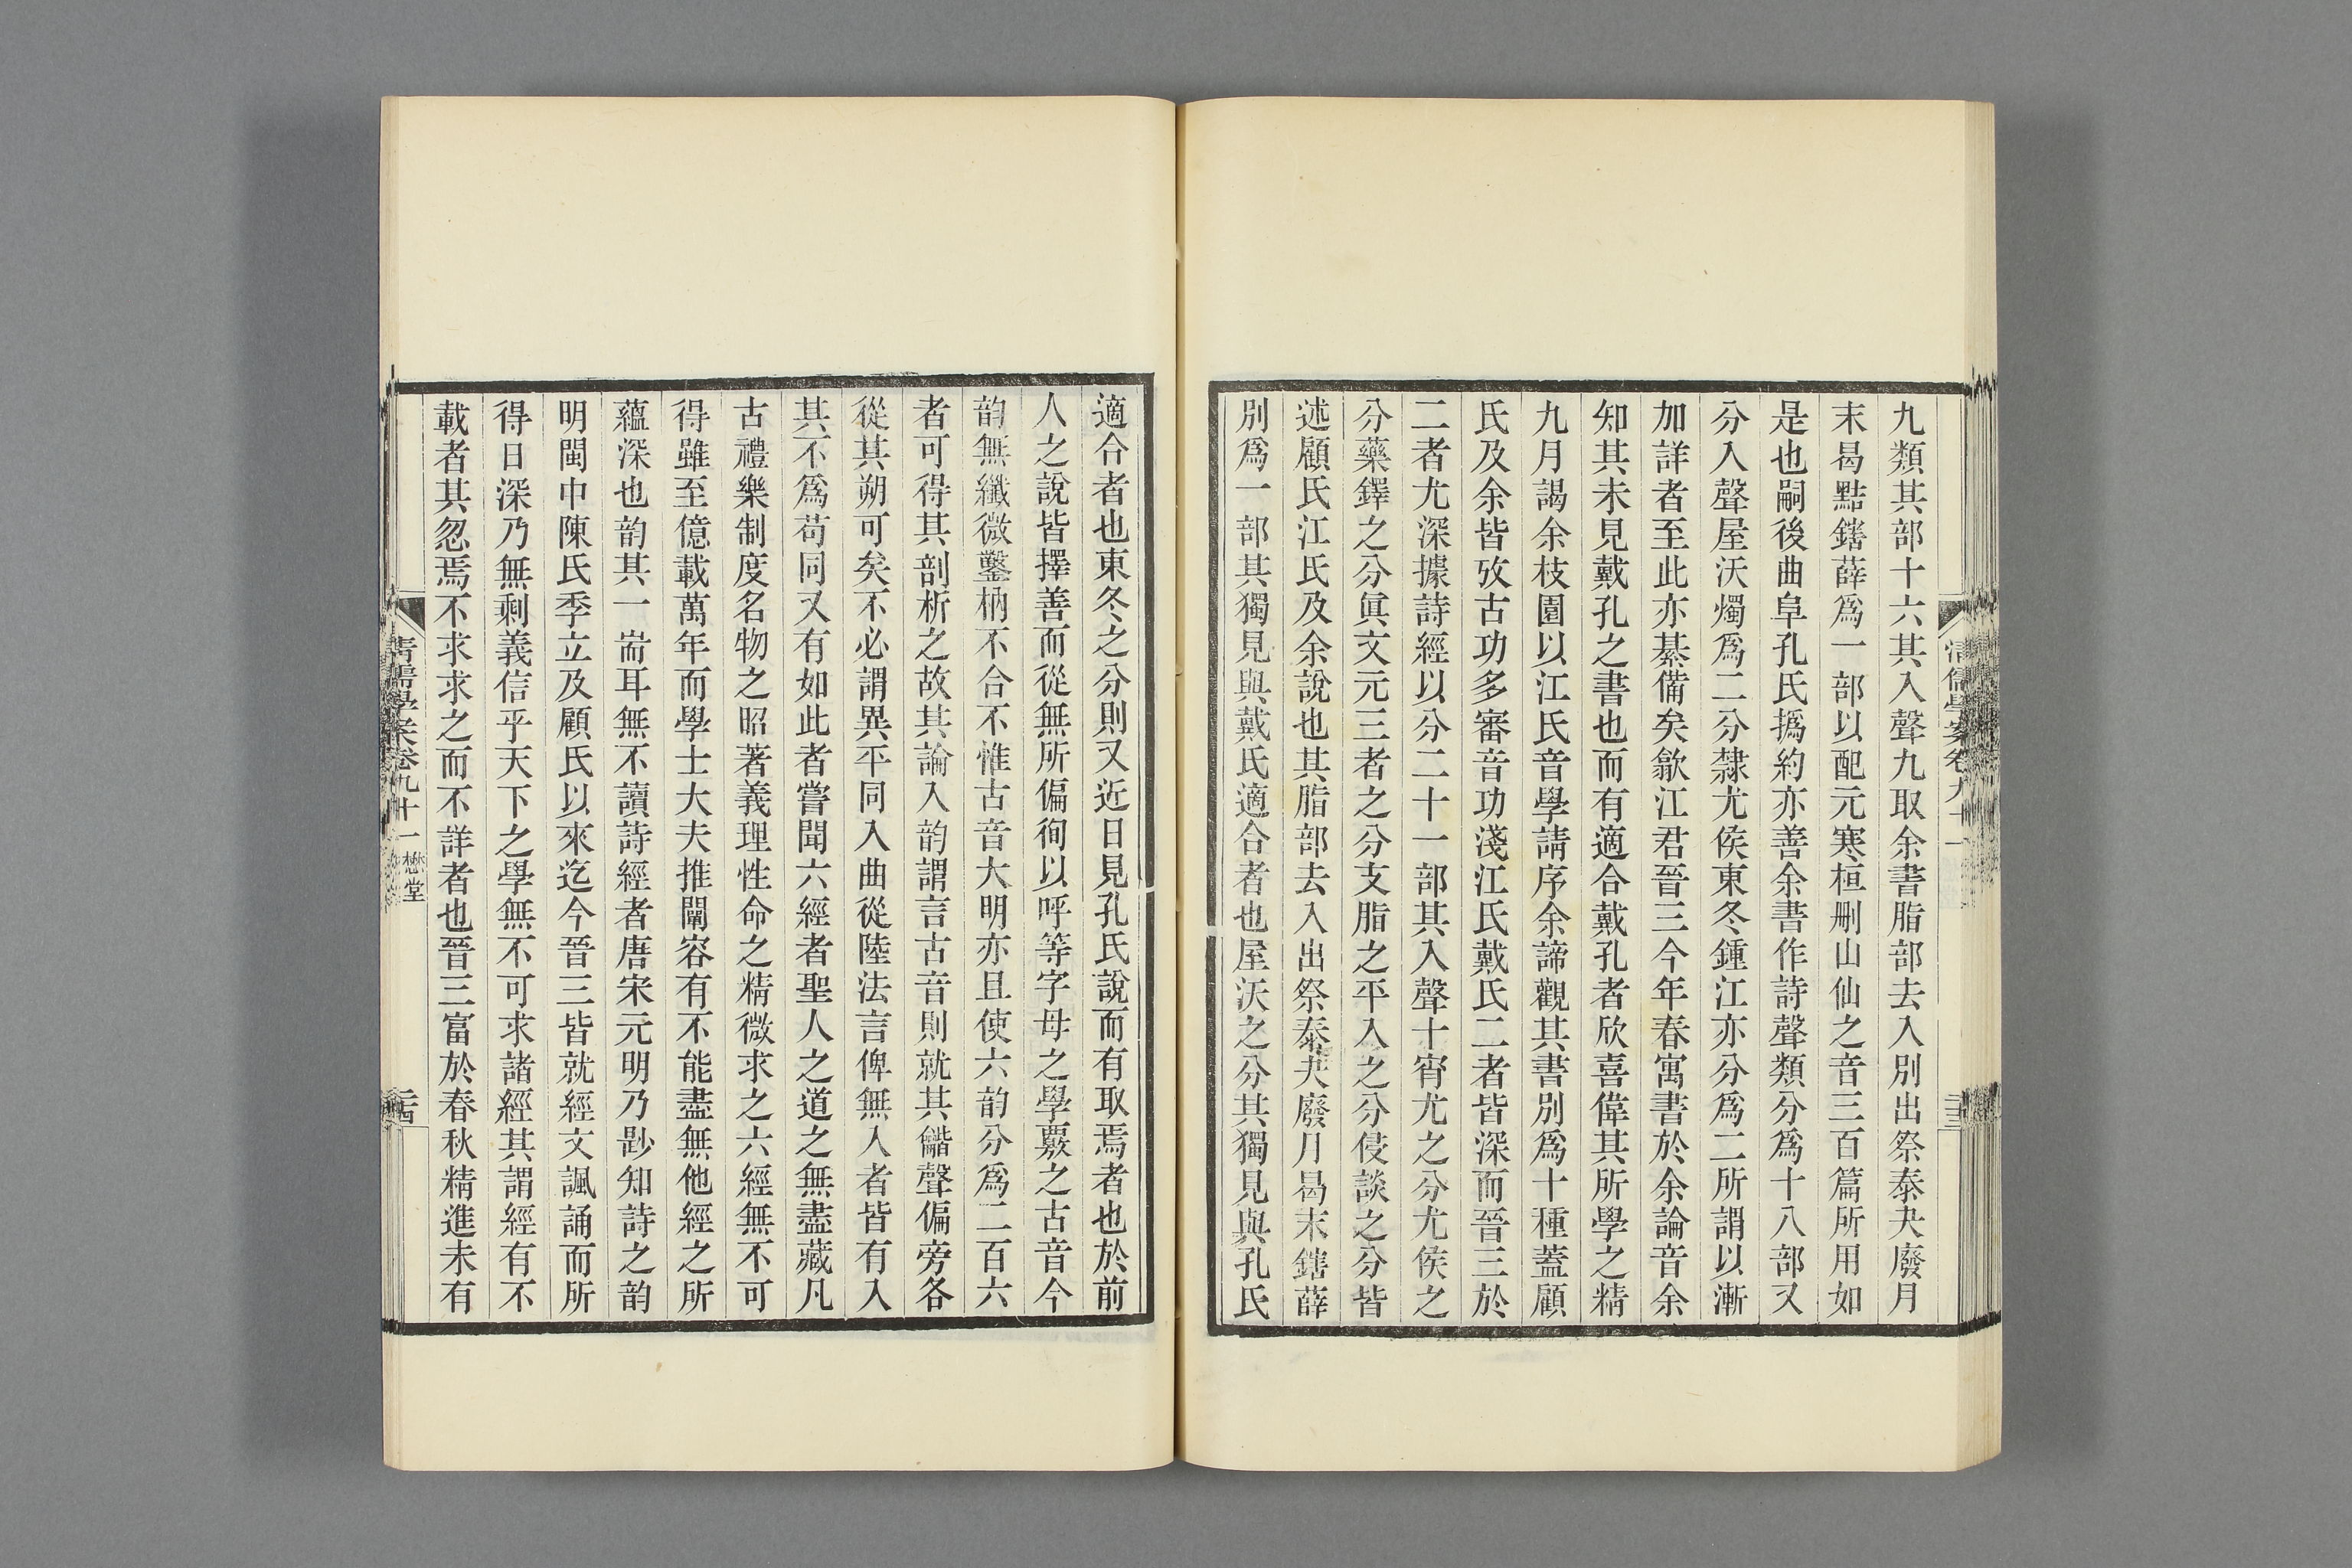 清儒學案卷九十一
二十三
九類其部十六其入聲九取余書脂部去入別出祭泰夬廢月
末曷黠鎋薛爲一部以配元寒桓刪山仙之音三百篇所用如
是也嗣後曲阜孔氏撝約亦善余書作詩聲類分爲十八部又
分入聲屋沃燭爲二分隸尤侯東冬鍾江亦分爲二所謂以漸
加詳者至此亦綦備矣歙江君晉三今年春寓書於余論音余
知其未見戴孔之書也而有適合戴孔者欣喜偉其所學之精
九月謁余枝園以江氏音學請序余諦觀其書別爲十種蓋顧
氏及余皆攷古功多審音功淺江氏戴氏二者皆深而晉三於
二者尤深據詩經以分二十一部其入聲十宵尤之分尤侯之
分藥鐸之分眞文元三者之分支脂之平入之分侵談之分皆
述顧氏江氏及余說也其脂部去入出祭泰夬廢月曷末鎋薛
別爲一部其獨見與戴氏適合者也屋沃之分其獨見與孔氏
適合者也東冬之分則又近日見孔氏說而有取焉者也於前
人之說皆擇善而從無所偏徇以呼等字母之學覈之古音今
韵無纖微鑿枘不合不惟古音大明亦且使六韵分爲二百六
者可得其剖析之故其論入韵謂言古音則就其龤聲偏旁各
從其朔可矣不必謂異平同入曲從陸法言俾無入者皆有入
其不爲苟同又有如此者嘗聞六經者聖人之道之無盡藏凡
古禮樂制度名物之昭著義理性命之精微求之六經無不可
得雖至億載萬年而學士大夫推闡容有不能盡無他經之所
蘊深也韵其一耑耳無不讀詩經者唐宋元明乃尟知詩之韵
明閩中陳氏季立及顧氏以來迄今晉三皆就經文諷誦而所
得日深乃無剩義信乎天下之學無不可求諸經其謂經有不
載者其忽焉不求求之而不詳者也晉三富於春秋精進未有
清儒學案卷九十一
懋堂
二十四